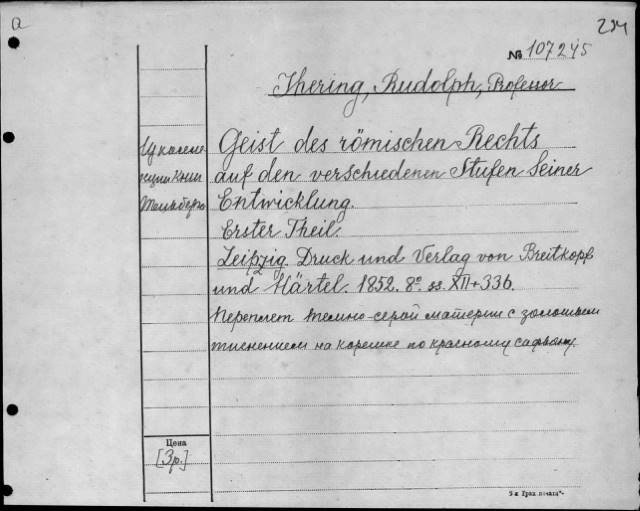 a
224
№ 107245
Jhering, Rudolph, Professor
Geist des römischen Rechts
auf den verschiedenen Stufen Seiner
Entwicklung.
Erster Theil.
Leipzig. Druck und Verlag von Breitkopf
und Härtel. 1852. 8º. ss. XII+336.
Переплет темно-серой материи с золотым
тиснением на корешке по красному сафьяну.
Цена
[3р.]